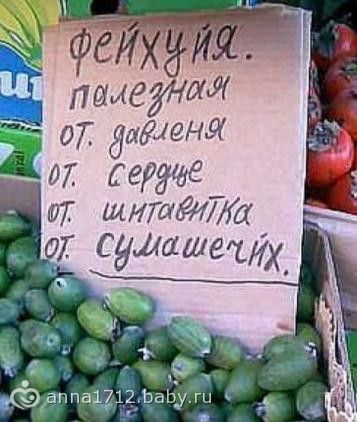 ФЕЙХУЙЯ.
палезная
от. давленя
от. сердце
от. шитавитка
от. сумашечйх.
anna1712.baby.ru